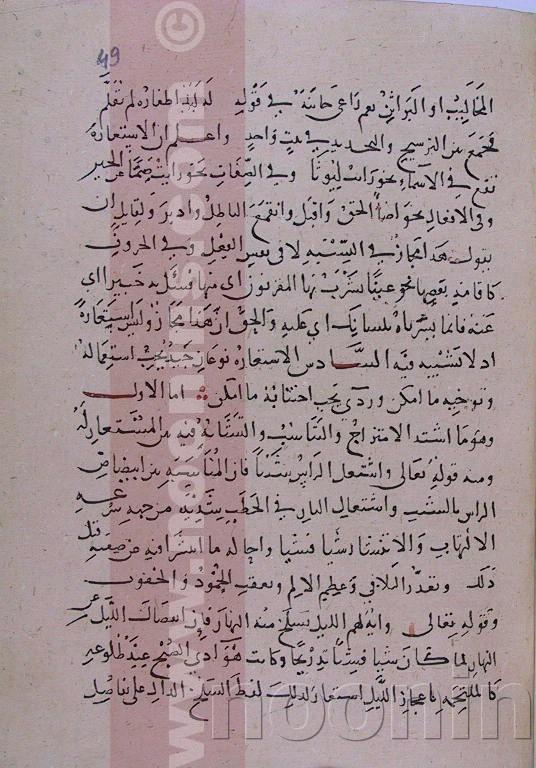 49
المخاليب او البراثن نعم راعى جانبه في قوله له لبد اظفاره لم تقلم
فجمع بين الترسيح والتجريد في بيت واحد واعلم ان الاستعارة
تقع في الاسماء نحو رايت ليوثا وفي الصفات نحو رايت صما عن الخير
وفي الافعال نحو اضاء الحق واقبل وانقمع الباطل وادبر ولقايل ان
يقول هذا مجاز في النسبة لا في نفس الفعل وفي الحروف
كاقامة بعضها نحو عينا يشرب بها المقربون اي منها فسئل به خبيرا اي
عنه فانما يسرناه بلسانك اي عليه والحق ان هذا مجاز وليس استعارة
اذ لا تشبيه فيه السادس الاستعارة نوعان جيد يجب استعماله
وتوخيه ما امكن وردي يجب اجتنابه ما امكن اما الاول
وهو ما اشتد الامتزاج والتناسب والتشابه فيه بين المستعار له
ومنه قوله تعالى واشتعل الراس شيبا فان المناسبه بين ابيضاض
الراس بالشيب واشتعال النار في الحطب شديده من جهه سرعه
الالتهاب والانتشار شيا فشيا واحاله ما انتشرا فيه عن صفته قبل
ذلك وتعذر التلافي وعظيم الالم وتعقب الجمود والخفوت
وقوله تعالى وايه لهم الليل نسلخ منه النهار فان انفصال الليل عن
النهار لما كان شيا فشيا تدريجا وكانت هوادي الصبح عند طلوعه
كالملتحمه باعجاز الليل استعار لذلك لفظ السلخ الدال على تفاصيل
www.noormags.com ©
noormags